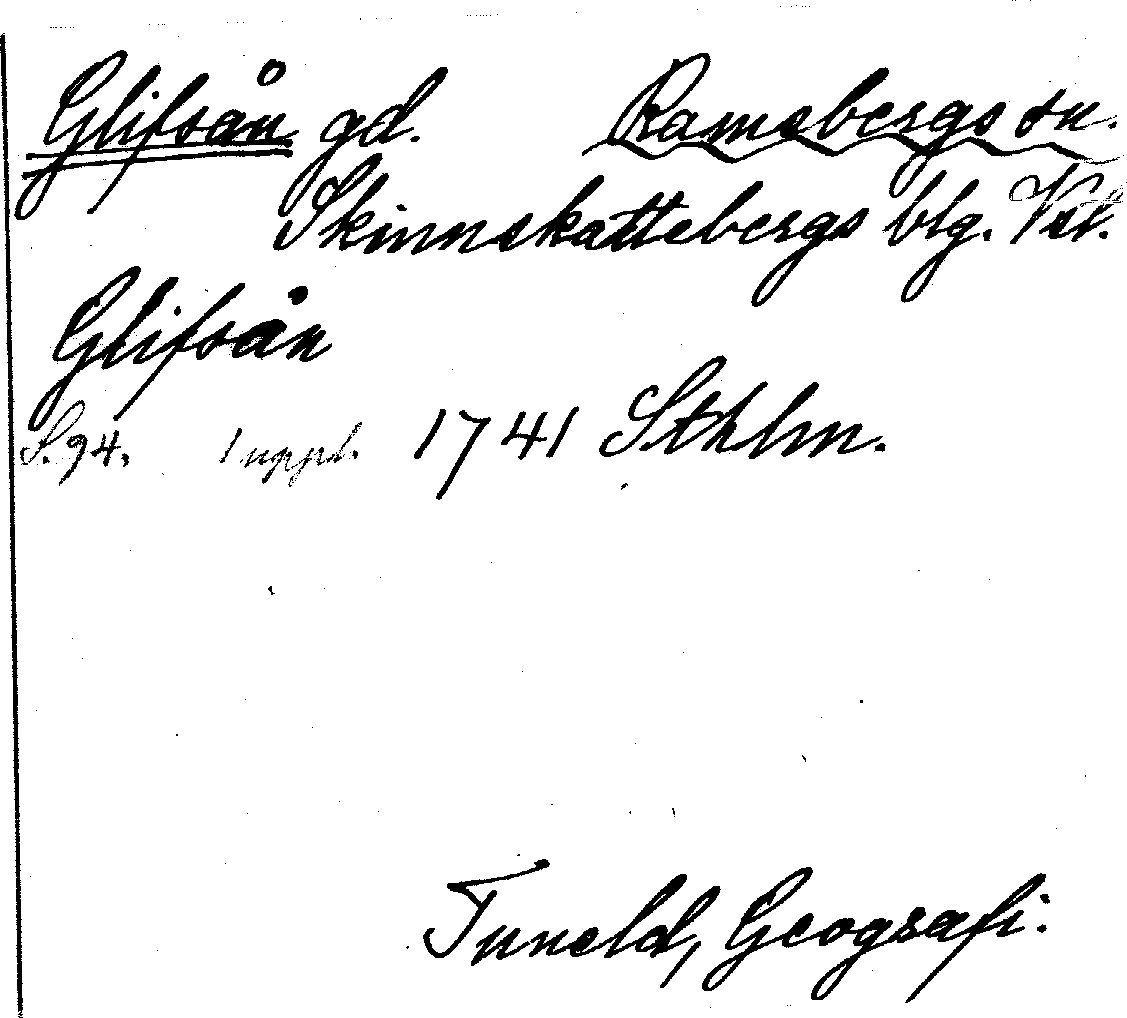 Glifsån gd. Ramsbergs sn.
Skinnskattebergs blg. Vstm.
Glifsån
S. 94. 1 uppl. 1741 Sthlm.
Tuneld, Geografi.